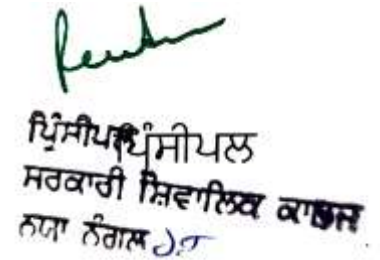 ਪ੍ਰਿੰਸੀਪਲ
ਪ੍ਰਿੰਸੀਪਲ
ਸਰਕਾਰੀ ਸ਼ਿਵਾਲਿਕ ਕਾਲਜ
ਨਯਾ ਨੰਗਲ